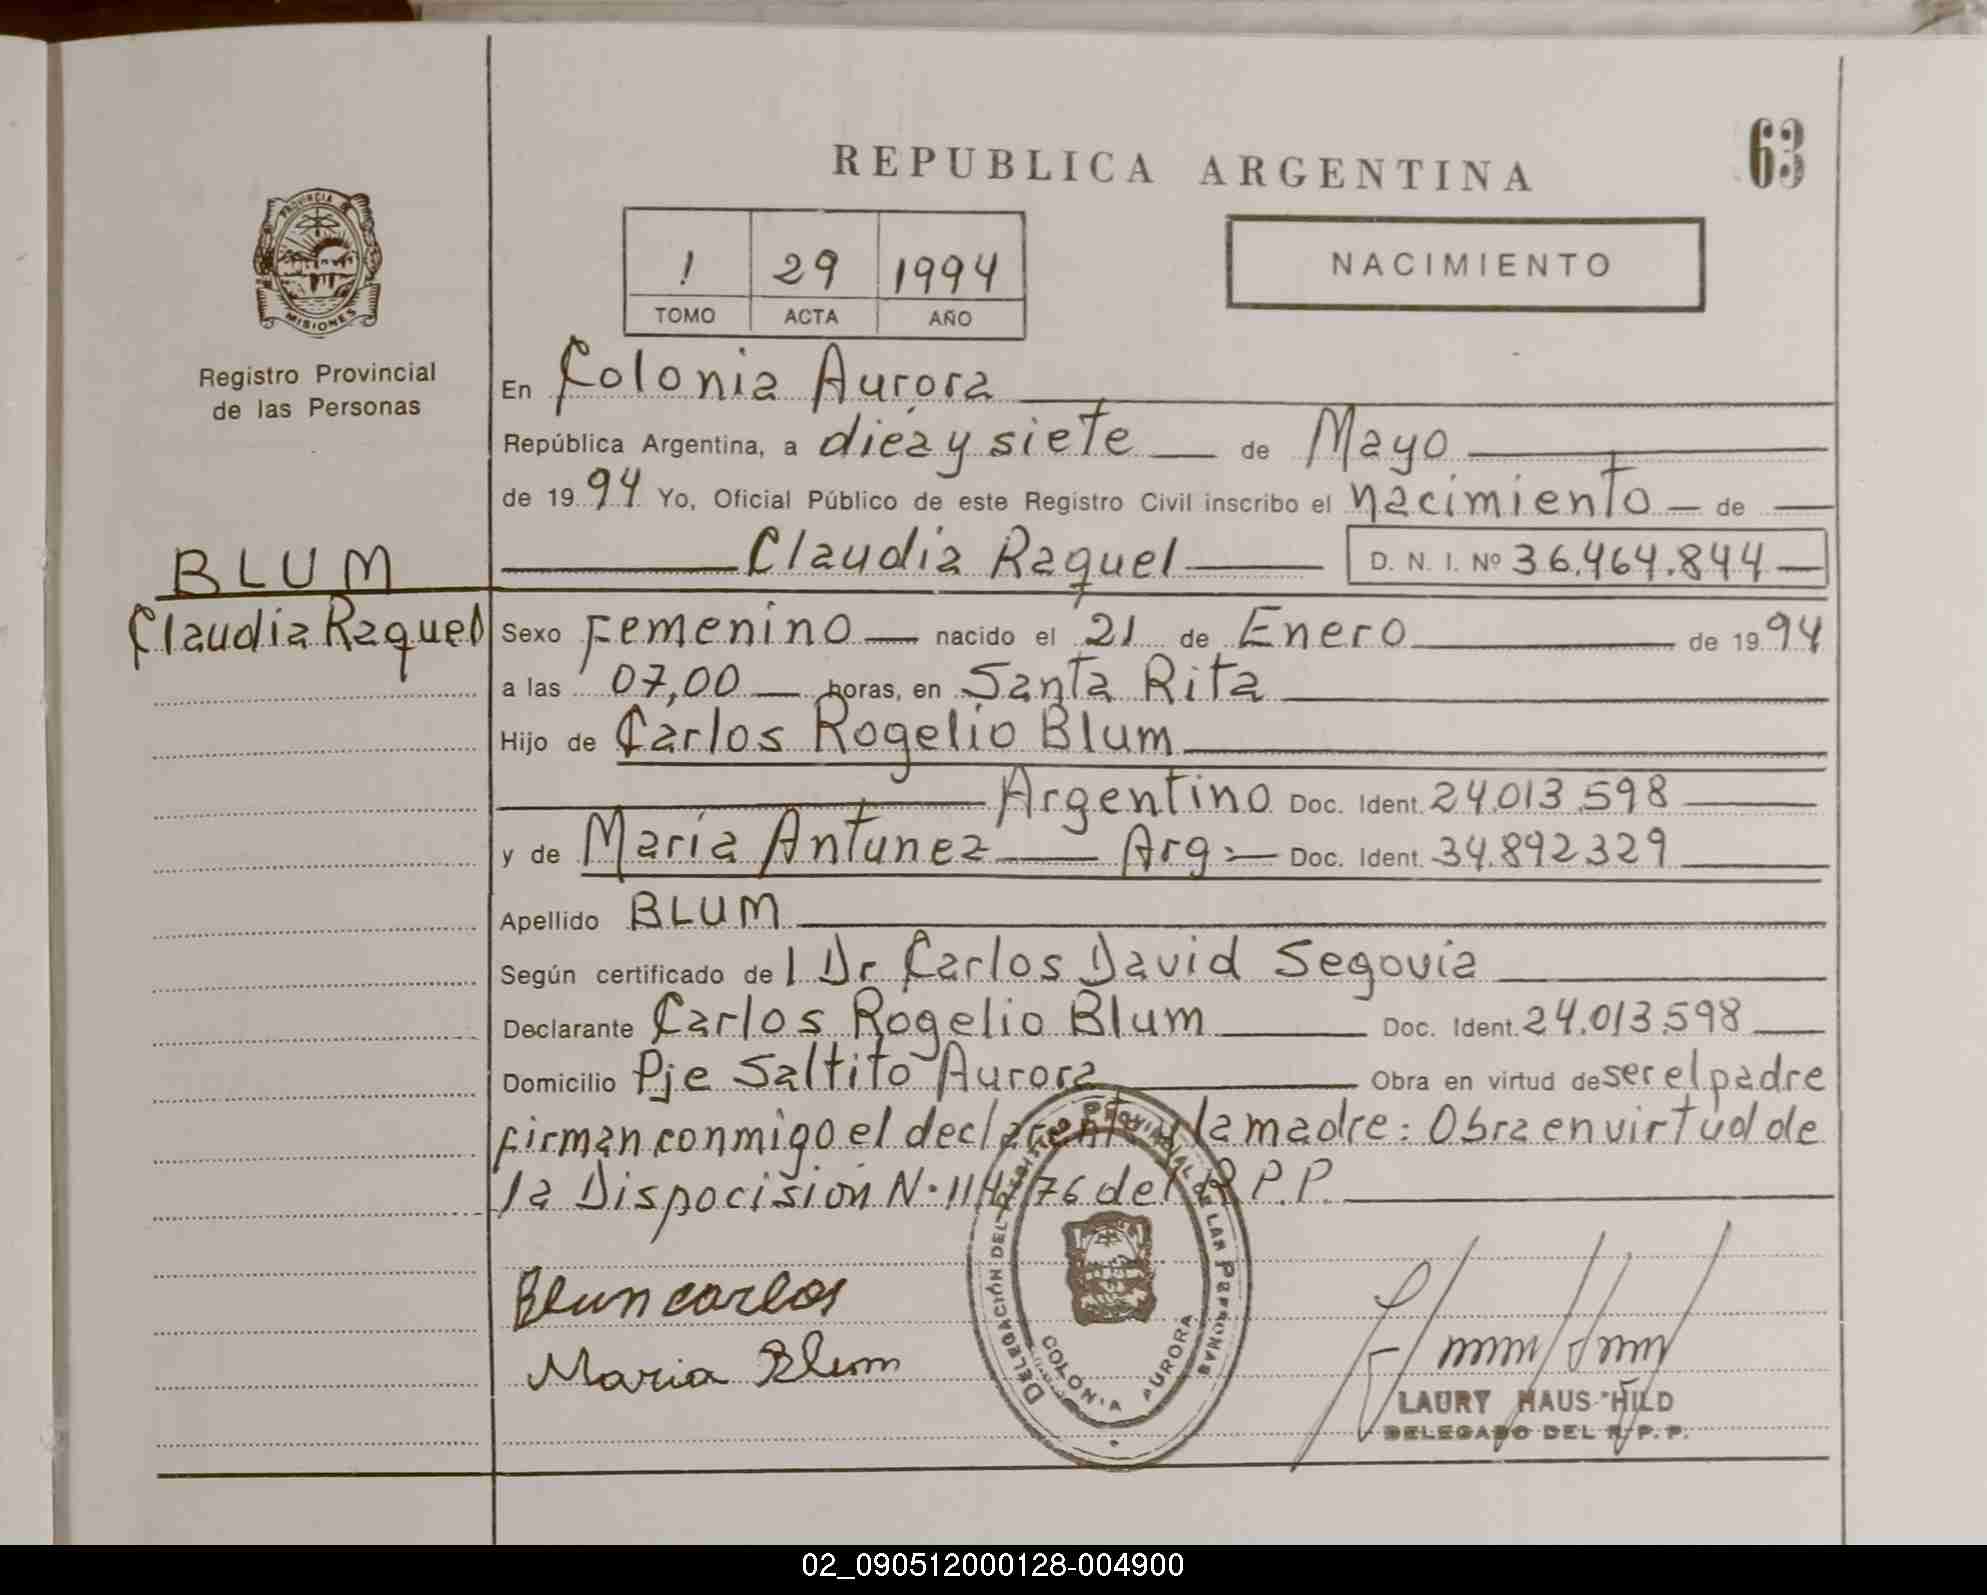 63
REPUBLICA ARGENTINA
PROVINCIA DE
MISIONES
Registro Provincial
de las Personas
1 29 1994
TOMO ACTA AÑO
NACIMIENTO
En Colonia Aurora
República Argentina, a diez y siete de Mayo
de 19 94 Yo, Oficial Público de este Registro Civil inscribo el nacimiento de
Claudia Raquel D. N. I. Nº 36.464.844
BLUM
Claudia Raquel
Sexo Femenino nacido el 21 de Enero de 19 94
a las 07,00 horas, en Santa Rita
Hijo de Carlos Rogelio Blum
Argentino Doc. Ident. 24.013.598
y de María Antunez Arg: Doc. Ident. 34.892329
Apellido BLUM
Según certificado de l Dr Carlos David Segovia
Declarante Carlos Rogelio Blum Doc. Ident. 24.013.598
Domicilio Pje Saltito Aurora Obra en virtud de ser el padre
firman conmigo el declarante y la madre: Obra en virtud de
la Dispocisión N. 114/76 del R.P.P.
DELEGACIÓN DEL REGISTRO PROVINCIAL DE LAS PERSONAS
COLONIA AURORA
Blum carlos
Maria Blum
LAURY HAUS HILD
DELEGADO DEL R.P.P.
02_090512000128-004900